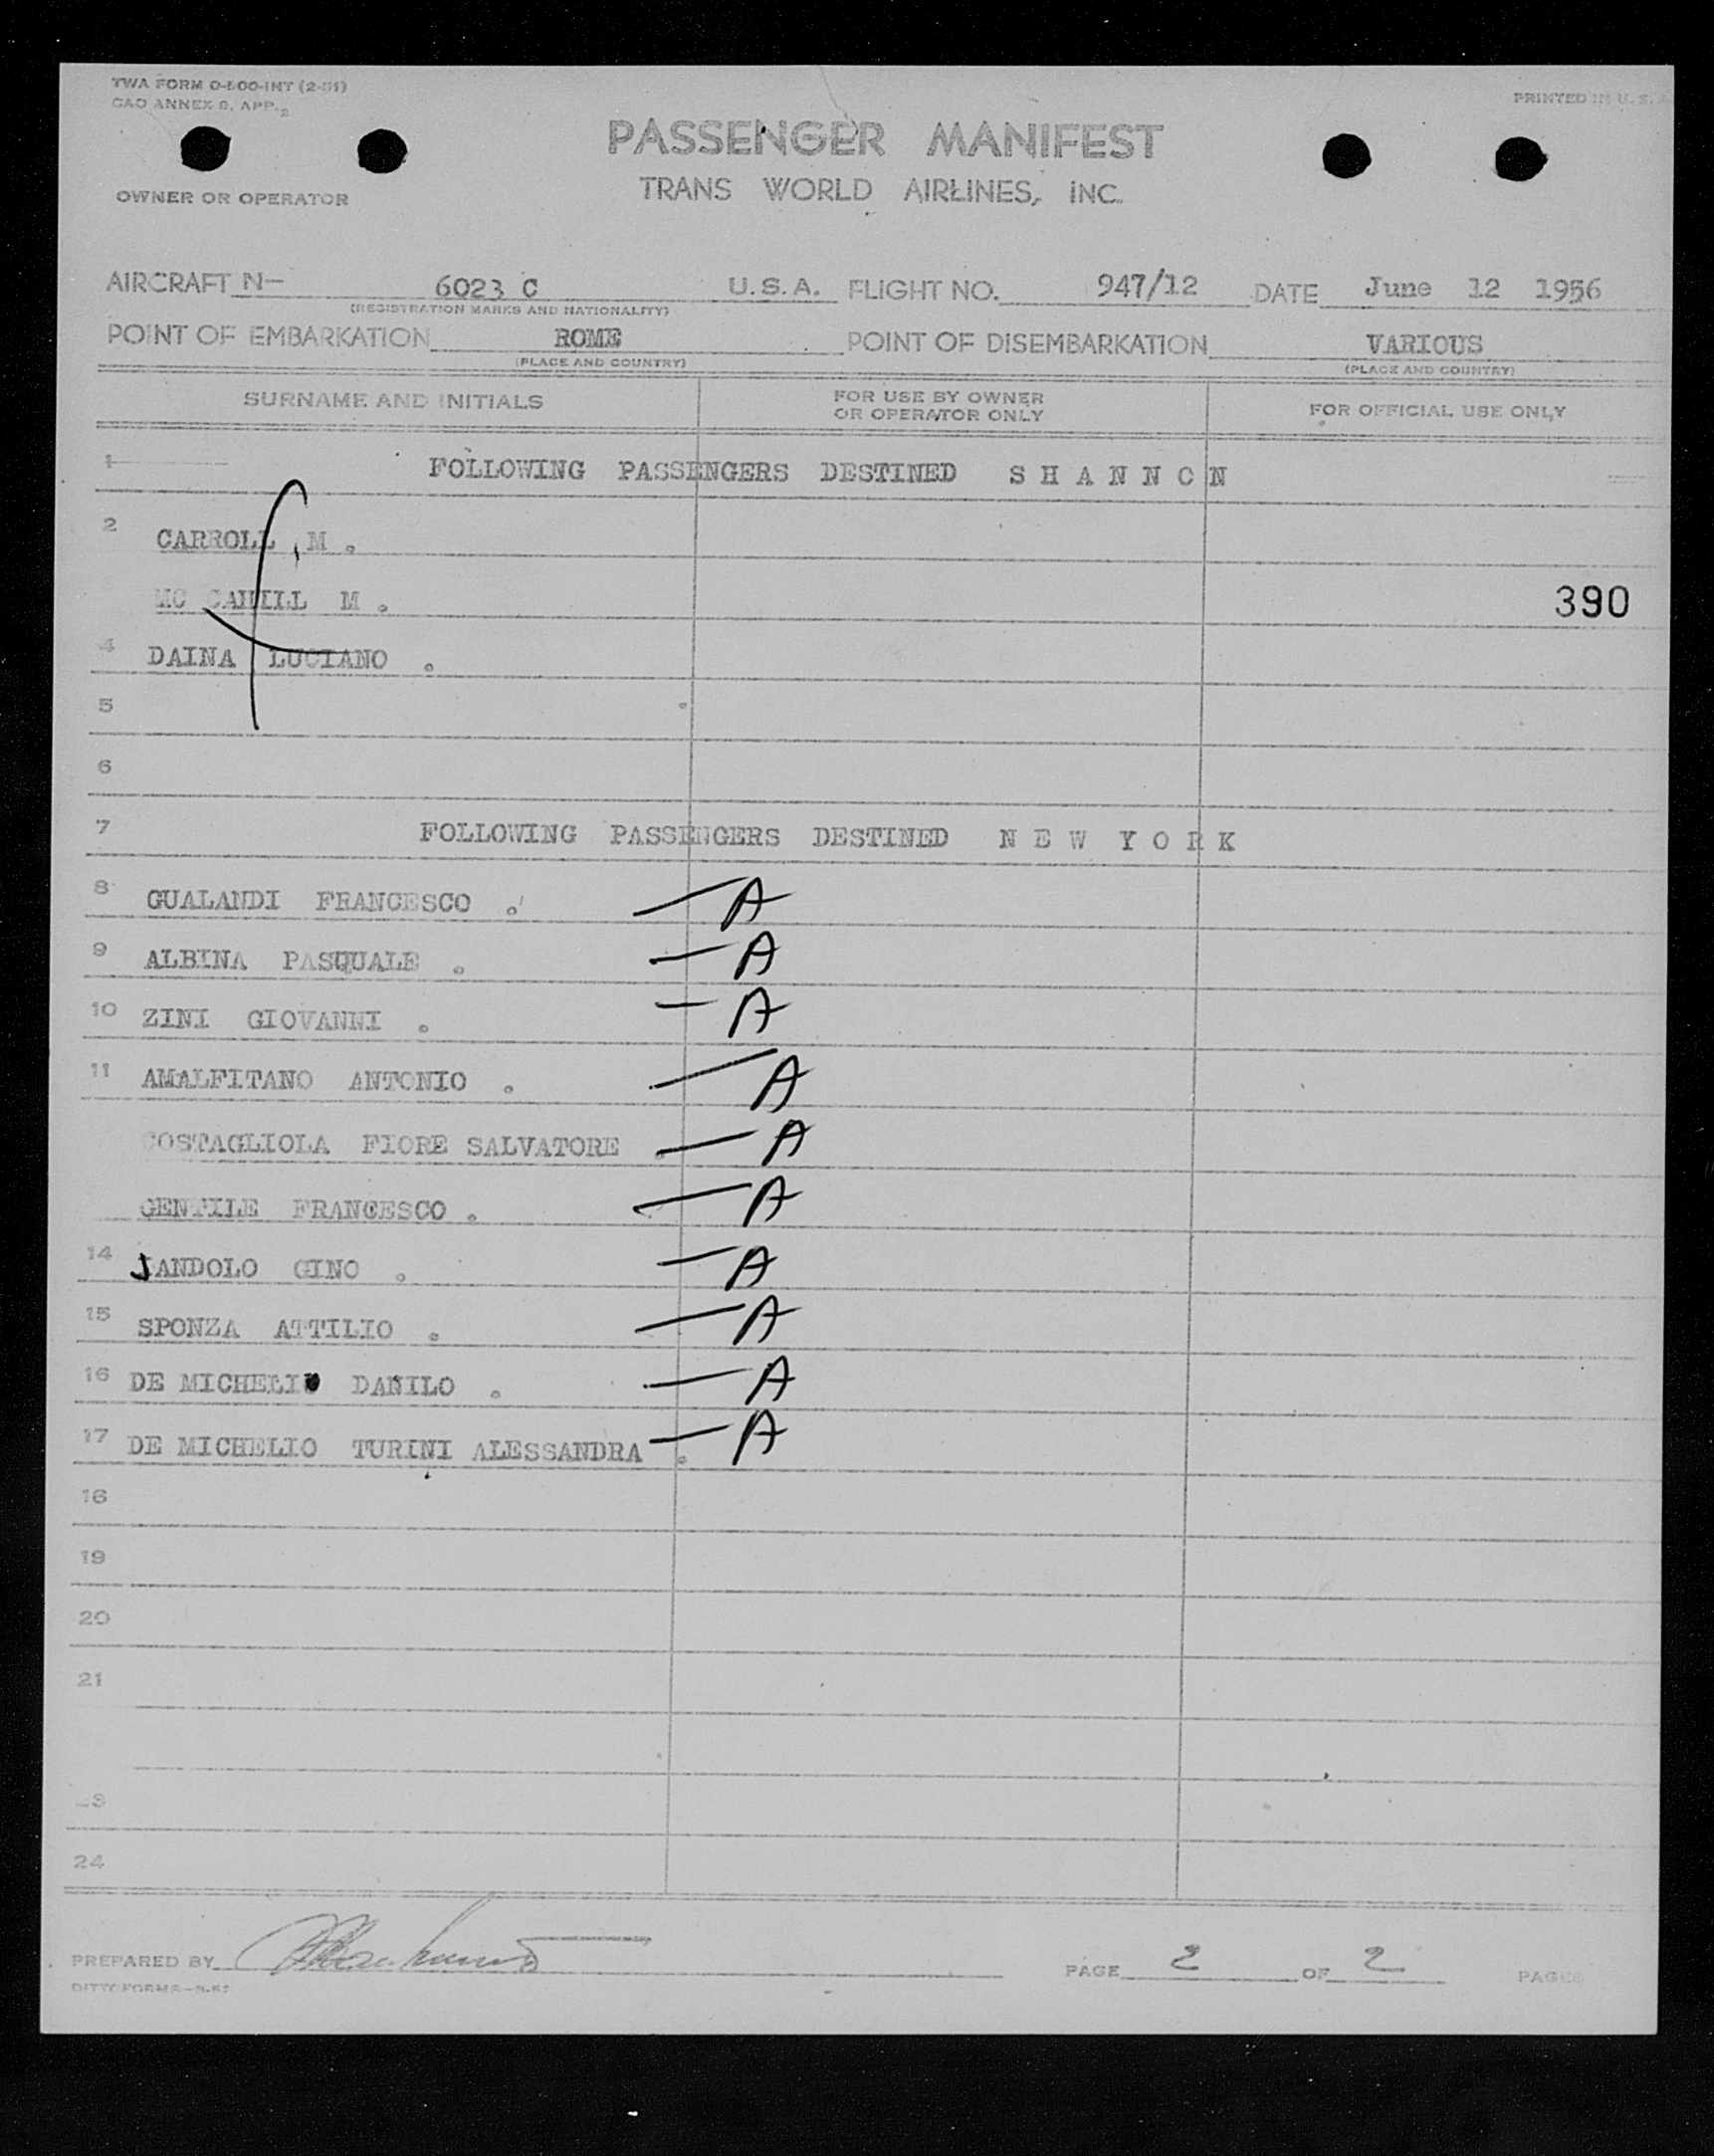 TWA FORM O-500-INT (2-51)
CAO ANNEX 9, APP. 2
PRINTED IN U. S. A.
PASSENGER MANIFEST
OWNER OR OPERATOR
TRANS WORLD AIRLINES, INC.
AIRCRAFT N— 6023 C U.S.A. FLIGHT NO. 947/12 DATE June 12 1956
(REGISTRATION MARKS AND NATIONALITY)
POINT OF EMBARKATION ROME POINT OF DISEMBARKATION VARIOUS
(PLACE AND COUNTRY) (PLACE AND COUNTRY)
SURNAME AND INITIALS FOR USE BY OWNER OR OPERATOR ONLY FOR OFFICIAL USE ONLY
1 FOLLOWING PASSENGERS DESTINED S H A N N O N
2 CARROLL , M .
MC CAHILL M . 390
4 DAINA LUCIANO .
5
6
7 FOLLOWING PASSENGERS DESTINED N E W Y O R K
8 GUALANDI FRANCESCO . — A
9 ALBINA PASQUALE . — A
10 ZINI GIOVANNI . — A
11 AMALFITANO ANTONIO . — A
COSTAGLIOLA FIORE SALVATORE . — A
GENTILE FRANCESCO . — A
14 JANDOLO GINO . — A
15 SPONZA ATTILIO . — A
16 DE MICHELI DANILO . — A
17 DE MICHELIO TURINI ALESSANDRA . — A
18
19
20
21
23
24
PREPARED BY PAGE 2 OF 2 PAGES
DITTY FORMS—